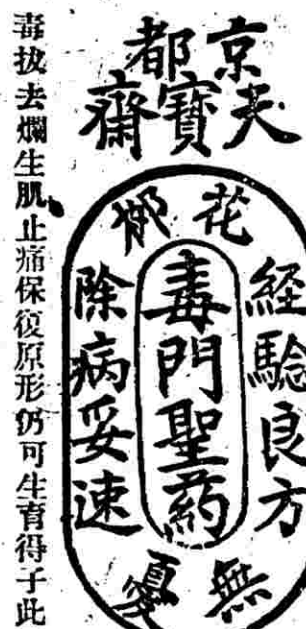 京都
夫寶齋
花柳
経驗良方
毒門聖药
除病妥速
無
毒拔去爛生肌止痛保復原形仍可生育得子此